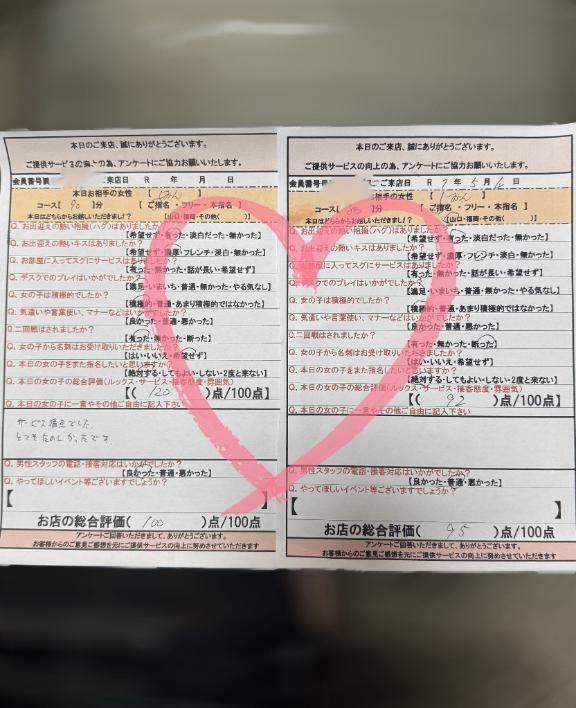 本日のご来店、誠にありがとうございます。
ご提供サービスの向上の為、アンケートにご協力お願いいたします。
会員番号 ご来店日 R 年 月 日
本日お相手の女性 【
コース【 90 】分 【 ご指名・フリー・本指名 】
本日はどちらからお越しいただきました!? 【山口・福岡・その他( )】
Q. お出迎えの熱い抱擁(ハグ)はありましたか?
【希望せず・有った・淡白だった・無かった】
Q. お出迎えの熱いキスはありましたか?
【希望せず・濃厚・フレンチ・淡白・無かった】
Q. お部屋に入ってスグにサービスはありましたか?
【有った・無かった・話が長い・希望せず】
Q. デスクでのプレイはいかがでしたか?
【満足・いまいち・普通・無かった・やる気なし】
Q. 女の子は積極的でしたか?
【積極的・普通・あまり積極的ではなかった】
Q. 気遣いや言葉使い、マナーなどはいかがでしたか?
【良かった・普通・悪かった】
Q.二回戦はされましたか?
【有った・無かった・断った】
Q. 女の子から名刺はお受け取りいただきましたか?
【はい・いいえ・希望せず】
Q. 本日の女の子をまた指名したいと思いますか?
【絶対する・してもよい・しない・2度と来ない】
Q. 本日の女の子の総合評価(ルックス・サービス・接客態度・雰囲気)
【( 120 )点/100点】
Q. 本日の女の子に一言やその他ご自由に記入下さい
サービス満点でした
とてもたのしかったです
Q. 男性スタッフの電話・接客対応はいかがでしたか?
【良かった・普通・悪かった】
Q. やってほしいイベント等ございますでしょうか?
【 】
お店の総合評価( 100 )点/100点
アンケートご回答いただきまして、ありがとうございます。
お客様からのご意見ご感想を元にご提供サービスの向上に努めさせていただきます
本日のご来店、誠にありがとうございます。
ご提供サービスの向上の為、アンケートにご協力お願いいたします。
会員番号 ご来店日 R 7 年 5 月 日
本日お相手の女性 【
コース【 】分 【 ご指名・フリー・本指名 】
本日はどちらからお越しいただきました!? 【山口・福岡・その他( )】
Q. お出迎えの熱い抱擁(ハグ)はありましたか?
【希望せず・有った・淡白だった・無かった】
Q. お出迎えの熱いキスはありましたか?
【希望せず・濃厚・フレンチ・淡白・無かった】
Q. お部屋に入ってスグにサービスはありましたか?
【有った・無かった・話が長い・希望せず】
でのプレイはいかがでしたか?
【満足・いまいち・普通・無かった・やる気なし】
Q. 女の子は積極的でしたか?
【積極的・普通・あまり積極的ではなかった】
Q. 気遣いや言葉使い、マナーなどはいかがでしたか?
【良かった・普通・悪かった】
Q.二回戦はされましたか?
【有った・無かった・断った】
Q. 女の子から名刺はお受け取りいただきましたか?
【はい・いいえ・希望せず】
Q. 本日の女の子をまた指名したいと思いますか?
【絶対する・してもよい・しない・2度と来ない】
Q. 本日の女の子の総合評価(ルックス・サービス・接客態度・雰囲気)
【( 92 )点/100点】
Q. 本日の女の子に一言やその他ご自由に記入下さい
Q. 男性スタッフの電話・接客対応はいかがでしたか?
【良かった・普通・悪かった】
Q. やってほしいイベント等ございますでしょうか?
【 】
お店の総合評価( 95 )点/100点
アンケートご回答いただきまして、ありがとうございます。
お客様からのご意見ご感想を元にご提供サービスの向上に努めさせていただきます